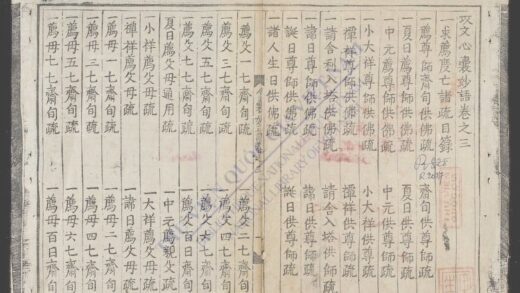 攻文心囊抄語卷之三
一求薦度亡諸疏目錄
一薦尊師齋旬供佛疏 齋旬供尊師疏
一夏日薦尊師供佛疏 夏日供尊師疏
一中元薦尊師供佛疏 中元供尊師疏
一小大祥尊師供佛疏 小大祥供尊師疏
一禫祥尊師供佛疏 禫祥供尊師疏
一請舍利入塔供佛疏 請舍入塔供師疏
一誕日尊師供佛疏 諱日供尊師疏
一諸人生日供佛疏 誕日供尊師疏
一薦父一七齋旬疏 一薦父二七齋旬疏
一薦父三七齋旬疏 一薦父四七齋旬疏
一薦父五七齋旬疏 一薦父六七齋旬疏
一薦父七七齋旬疏 一薦父百日齋旬疏
夏日薦父母通用疏 一中元薦親父疏
一小祥薦父母疏 一大祥薦父母疏
一禫祥薦父母疏 諱日薦父母疏
一薦母一七齋旬疏 一薦母二七齋旬疏
一薦母三七齋旬疏 一薦母四七齋旬疏
一薦母五七齋旬疏 一薦母六七齋旬疏
一薦母七七齋旬疏 一薦母百日齋旬疏